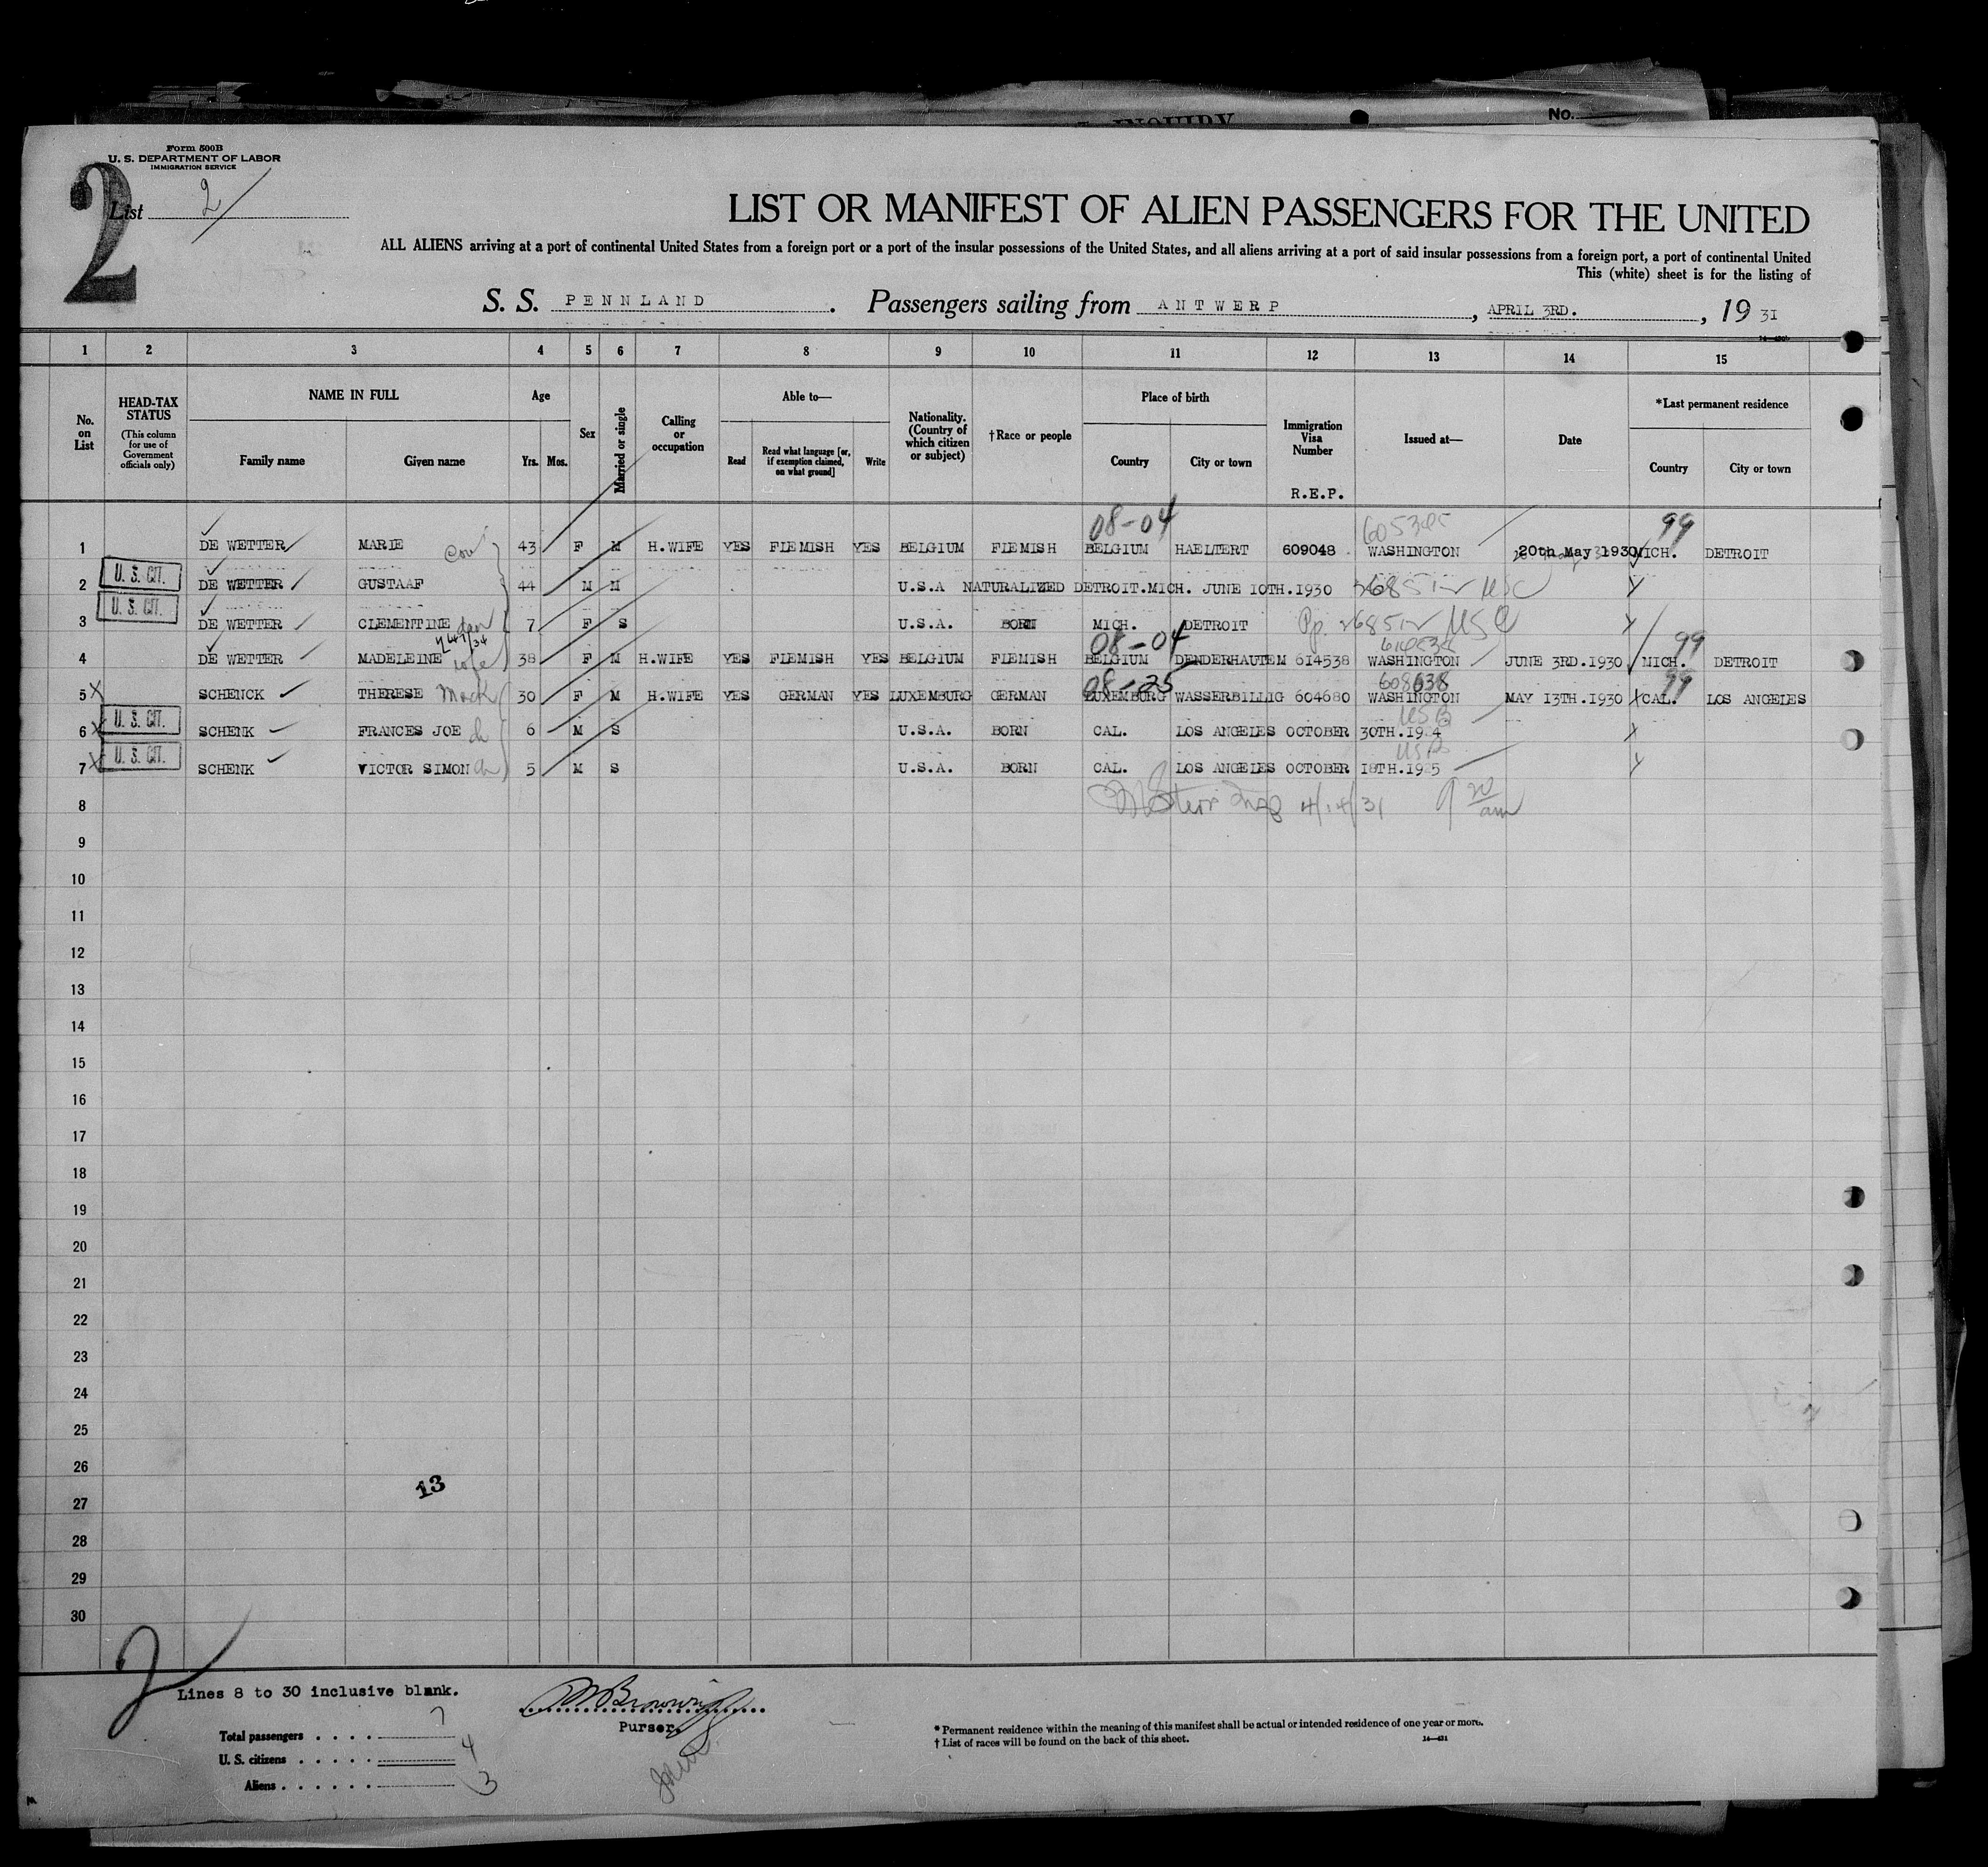 INQUIRY
No.
Form 500B
U. S. DEPARTMENT OF LABOR
IMMIGRATION SERVICE
2
List 2
LIST OR MANIFEST OF ALIEN PASSENGERS FOR THE UNITED
ALL ALIENS arriving at a port of continental United States from a foreign port or a port of the insular possessions of the United States, and all aliens arriving at a port of said insular possessions from a foreign port, a port of continental United
This (white) sheet is for the listing of
S. S. PENNLAND. Passengers sailing from ANTWERP, APRIL 3RD., 19 31
1 2 3 4 5 6 7 8 9 10 11 12 13 14 15
No. on List
HEAD-TAX STATUS (This column for use of Government officials only)
NAME IN FULL
Family name
Given name
Age
Yrs. Mos.
Sex
Married or single
Calling or occupation
Able to—
Read
Read what language [or, if exemption claimed, on what ground]
Write
Nationality. (Country of which citizen or subject)
†Race or people
Place of birth
Country
City or town
Immigration Visa Number
R.E.P.
Issued at—
Date
*Last permanent residence
Country
City or town
08-04 605345 99
1 DE WETTER MARIE 43 F M H.WIFE YES FLEMISH YES BELGIUM FLEMISH BELGIUM HAELTERT 609048 WASHINGTON 20th May 1930 MICH. DETROIT
2 U. S. CIT. DE WETTER GUSTAAF 44 M M U.S.A NATURALIZED DETROIT.MICH. JUNE 10TH.1930
3 U. S. CIT. DE WETTER CLEMENTINE 7 F S U.S.A. BORN MICH. DETROIT
08-04 99
4 DE WETTER MADELEINE wife 38 F M H.WIFE YES FLEMISH YES BELGIUM FLEMISH BELGIUM DENDERHAUTEM 614538 WASHINGTON JUNE 3RD.1930 MICH. DETROIT
08-25 608638 99
5 SCHENCK THERESE 30 F M H.WIFE YES GERMAN YES LUXEMBURG GERMAN LUXEMBURG WASSERBILLIG 604680 WASHINGTON MAY 13TH.1930 CAL. LOS ANGELES
6 U. S. CIT. SCHENK FRANCES JOE ch 6 M S U.S.A. BORN CAL. LOS ANGELES OCTOBER 30TH.1924
7 U. S. CIT. SCHENK VICTOR SIMON ch 5 M S U.S.A. BORN CAL. LOS ANGELES OCTOBER 18TH.1925
8 4/14/31 9 20 am
9
10
11
12
13
14
15
16
17
18
19
20
21
22
23
24
25
26
13
27
28
29
30
2
Lines 8 to 30 inclusive blank.
Purser.
Total passengers . . . . 7
U. S. citizens . . . . . 4
Aliens . . . . . . 3
* Permanent residence within the meaning of this manifest shall be actual or intended residence of one year or more.
† List of races will be found on the back of this sheet.
14—431